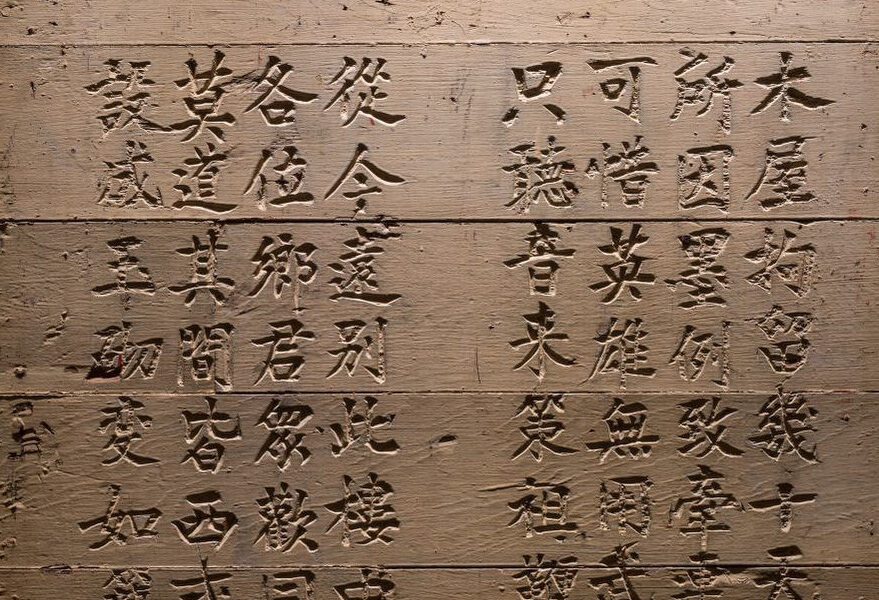 木屋拘留幾十天
所因墨例致牽
可惜英雄無用武
只聽音來策祖
從今遠別此樓
各位鄉君眾歡
莫道其間皆西
設成玉砌變如